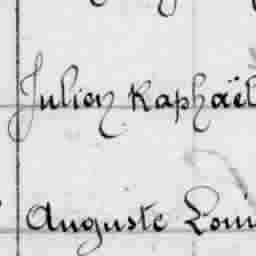 Julien Raphaël
Auguste Loui